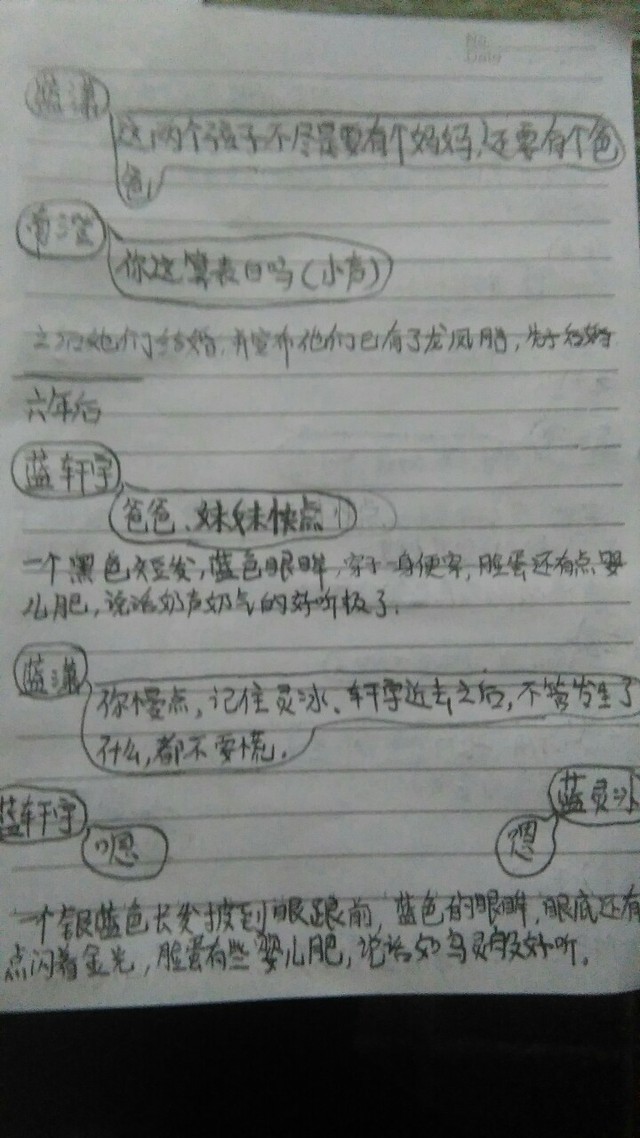 No.
Date
蓝潇
这两个孩子不尽是要有个妈妈,还要有个爸
爸
你这算表白吗(小声)
之后她们结婚,并宣布他们已有了龙凤胎,
六年后
蓝轩宇
爸爸、妹妹快点
一个黑色短发,蓝色眼眸,穿了一身便穿,脸蛋还有点婴
儿肥,说话奶声奶气的好听极了.
蓝潇
你慢点,记住灵冰、轩宇近去之后,不管发生了
什么,都不要慌.
蓝轩宇
蓝灵冰
嗯
嗯
一个银蓝色长发披到眼跟前,蓝色的眼眸,眼底还有
点闪着金光,脸蛋有些婴儿肥,说话如鸟灵般好听.